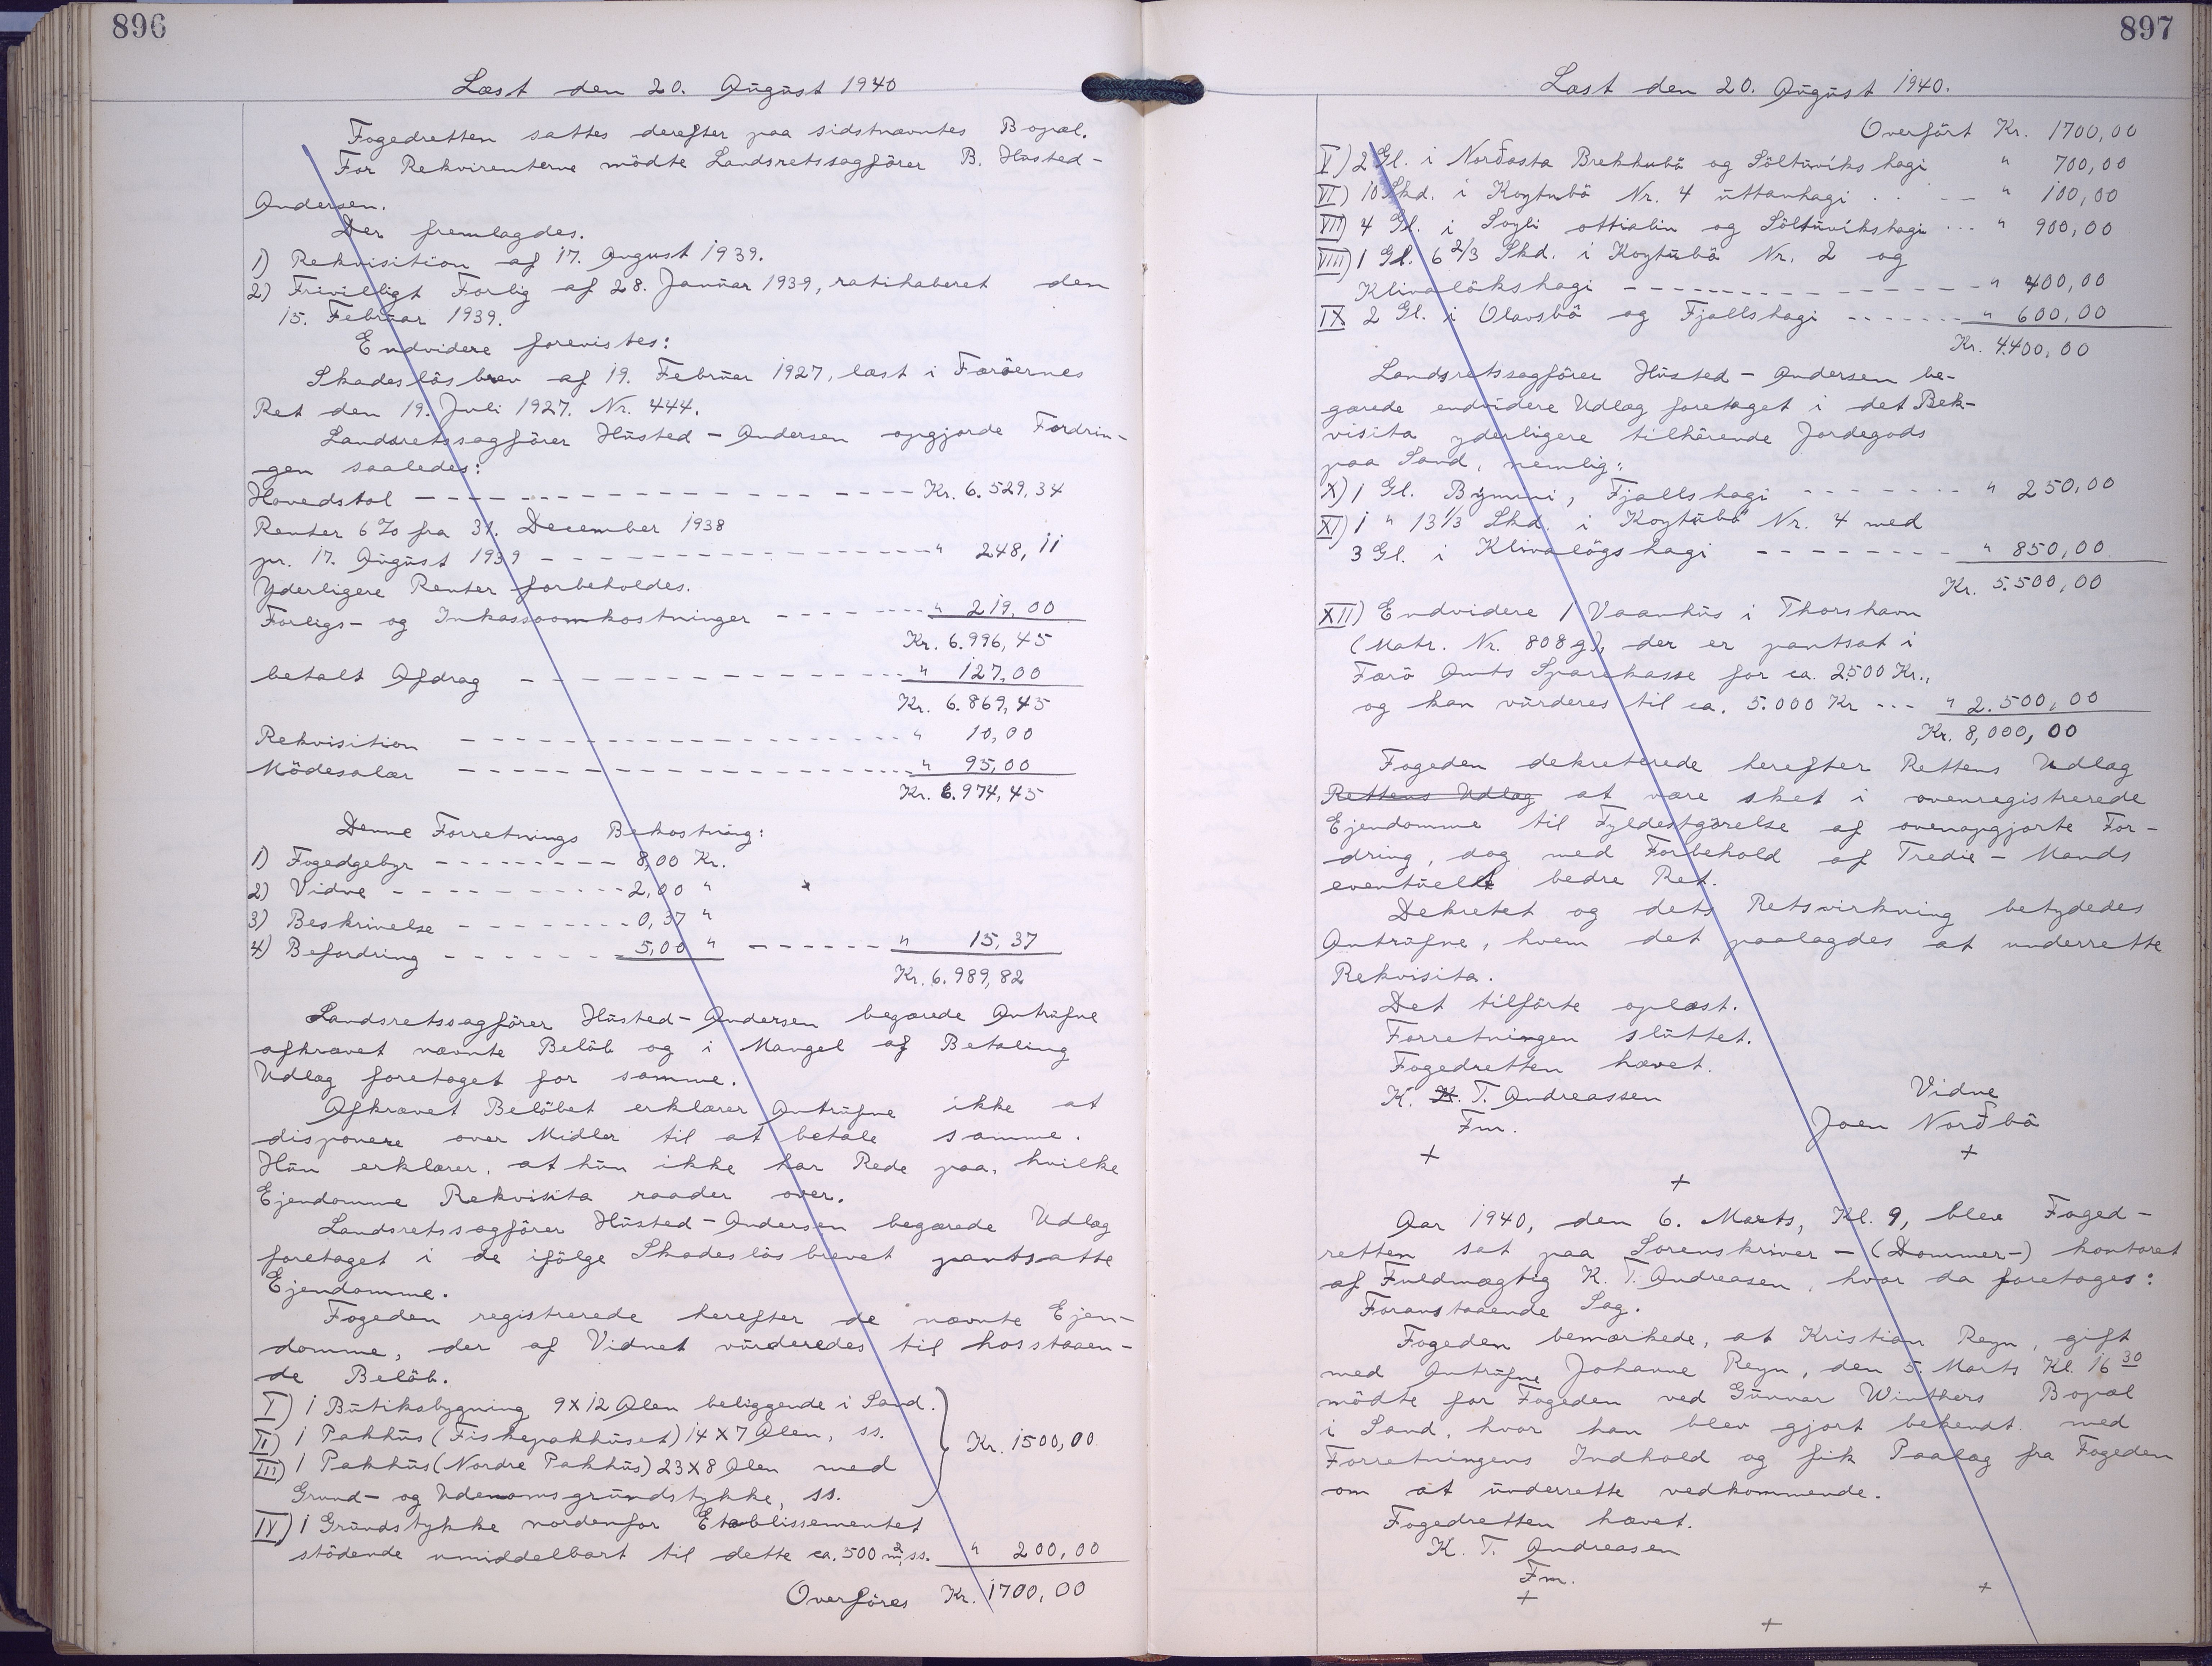 896
Læst den 20. August 1940
Fogedretten sattes derefter paa sidstnævntes Bopæl.
For Rekvirenterne mödte Landsretssagförer B. Husted-
Andersen.
Der fremlagdes.
1) Rekvisition af 17. August 1939.
2) Frivilligt Forlig af 28. Januar 1939, ratihaberet den
15. Februar 1939.
Endvidere forevistes:
Skadeslösbrev af 19. Februar 1927, læst i Færöernes
Ret den 19. Juli 1927. Nr. 444.
Landsretssagförer Husted-Andersen opgjorde Fordrin-
gen saaledes:
Hovedstol - - - Kr. 6.529,34
Renter 6% fra 31. December 1938
pr. 17. August 1939 - - - " 248,11
Yderligere Renter forbeholdes.
Forligs- og Inkassoomkostninger - - - " 219,00
Kr. 6.996,45
betalt Afdrag - - - " 127,00
Kr. 6.869,45
Rekvisition - - - " 10,00
Mödesalær - - - " 95,00
Kr. 6.974,45
Denne Forretnings Bekostning:
1) Fogedgebyr - - - 8,00 Kr.
2) Vidne - - - 2,00 "
3) Beskrivelse - - - 0,37 "
4) Befordring - - - 5,00 " - - - " 15,37
Kr. 6.989,82
Landsretssagförer Husted-Andersen begærede Antrufne
afkrævet nævnte Belöb og i Mangel af Betaling
Udlæg foretaget for samme.
Afkrævet Belöbet erklærer Antrufne ikke at
disponere over Midler til at betale samme.
Hun erklærer, at hun ikke har Rede paa, hvilke
Ejendomme Rekvisita raader over.
Landsretssagförer Husted-Andersen begærede Udlæg
foretaget i de ifölge Skadeslösbrevet pantsatte
Ejendomme.
Fogeden registrerede herefter de nævnte Ejen-
domme, der af Vidnet vurderedes til hosstaaen-
de Belöb.
I) 1 Butiksbygning 9x12 Alen beliggende i Sand.
II) 1 Pakhus (Fiskepakhuset) 14x7 Alen, ss. Kr. 1500,00
III) 1 Pakhus (Nordre Pakhus) 23x8 Alen med
Grund- og Udenomsgrundstykke, ss.
IV) 1 Grundstykke nordenfor Etablissementet
stödende umiddelbart til dette ca. 500 m², ss. " 200,00
Overföres Kr. 1700,00
897
Læst den 20. August 1940.
Overfört Kr. 1700,00
V) 2 Gl. i Norðasta Brekkubö og Söltuvíkshagi " 700,00
VI) 10 Skd. i Koytubö Nr. 4 uttanhagi . . - - " 100,00
VII) 4 Gl. i Soyli ottialin og Söltuvíkshagi ... " 900,00
VIII) 1 Gl. 6 2/3 Skd. i Koytubö Nr. 2 og
Klivalökshagi - - - " 400,00
IX 2 Gl. i Olavsbö og Fjallshagi - - - " 600,00
Kr. 4.400,00
Landsretssagförer Husted-Andersen be-
gærede endvidere Udlæg foretaget i det Rek-
visita yderligere tilhörende Jordegods
paa Sand, nemlig:
X) 1 Gl. Býmuni, Fjallshagi - - - " 250,00
XI) 1 " 13 1/3 Skd. i Koytubö Nr. 4 med
3 Gl. i Klivalögshagi - - - " 850,00
Kr. 5.500,00
XII) Endvidere 1 Vaanhus i Thorshavn
(Matr. Nr. 808 g), der er pantsat i
Færö Amts Sparekasse for ca. 2500 Kr.,
og kan vurderes til ca. 5.000 Kr ... " 2.500,00
Kr. 8,000,00
Fogeden dekreterede herefter Rettens Udlæg
Rettens Udlæg at være sket i ovenregistrerede
Ejendomme til Fyldestgörelse af ovenopgjorte For-
dring, dog med Forbehold af Tredie-Mands
eventuelt bedre Ret.
Dekretet og dets Retsvirkning betydedes
Antrufne, hvem det paalagdes at underrette
Rekvisita.
Det tilförte oplæst.
Forretningen sluttet.
Fogedretten hævet.
K. T. Andreassen Vidne
Fm. Joen Norðbö
+ +
+
Aar 1940, den 6. Marts, Kl. 9, blev Foged-
retten sat paa Sorenskriver-(Dommer-) kontoret
af Fuldmægtig K. T. Andreasen, hvor da foretoges:
Foranstaaende Sag.
Fogeden bemærkede, at Kristian Reyn, gift
med Antrufne Johanne Reyn, den 5. Marts Kl. 16 30
mödte for Fogeden ved Gunnar Winthers Bopæl
i Sand, hvor han blev gjort bekendt med
Forretningens Indhold og fik Paalæg fra Fogeden
om at underrette vedkommende.
Fogedretten hævet.
K. T. Andreasen
Fm.
+ +
+